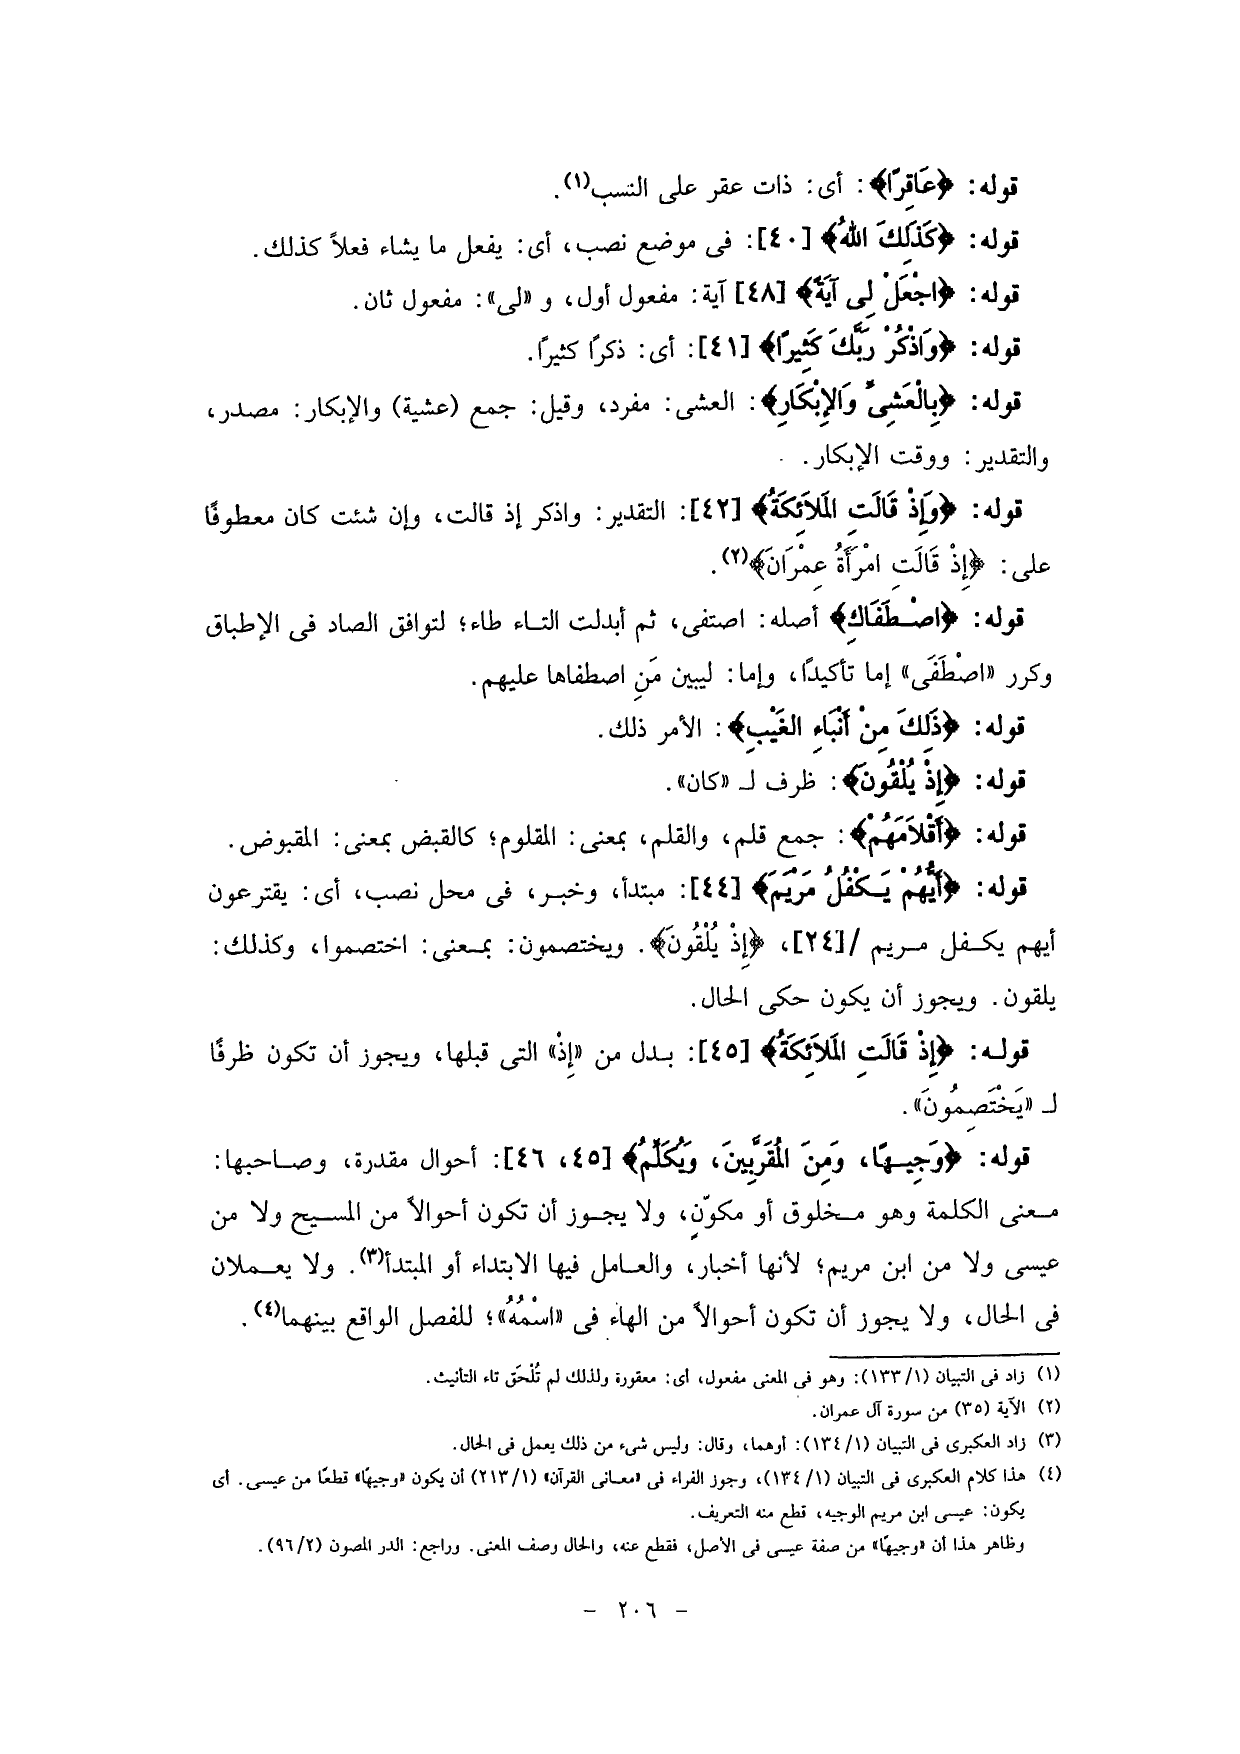 قوله: ﴿عَاقِرًا﴾: أى: ذات عقر على النسب(١).
قوله: ﴿كَذَلِكَ اللهُ﴾ [٤٠]: فى موضع نصب، أى: يفعل ما يشاء فعلاً كذلك.
قوله: ﴿اجْعَلْ لِى آيَةً﴾ [٤٨] آية: مفعول أول، و «لى»: مفعول ثان.
قوله: ﴿وَاذْكُرْ رَبَّكَ كَثِيرًا﴾ [٤١]: أى: ذكرًا كثيرًا.
قوله: ﴿بِالْعَشِىِّ وَالإِبْكَارِ﴾: العشى: مفرد، وقيل: جمع (عشية) والإبكار: مصدر،
والتقدير: ووقت الإبكار.
قوله: ﴿وَإِذْ قَالَتِ المَلاَئِكَةُ﴾ [٤٢]: التقدير: واذكر إذ قالت، وإن شئت كان معطوفًا
على: ﴿إِذْ قَالَتِ امْرَأَةُ عِمْرَانَ﴾(٢).
قوله: ﴿اصْطَفَاكِ﴾ أصله: اصتفى، ثم أبدلت التاء طاء؛ لتوافق الصاد فى الإطباق
وكرر «اصْطَفَى» إما تأكيدًا، وإما: ليبين مَنِ اصطفاها عليهم.
قوله: ﴿ذَلِكَ مِنْ أَنْبَاءِ الغَيْبِ﴾: الأمر ذلك.
قوله: ﴿إِذْ يُلْقُونَ﴾: ظرف لـ «كان».
قوله: ﴿أَقْلاَمَهُمْ﴾: جمع قلم، والقلم، بمعنى: المقلوم؛ كالقبض بمعنى: المقبوض.
قوله: ﴿أَيُّهُمْ يَكْفُلُ مَرْيَمَ﴾ [٤٤]: مبتدأ، وخبر، فى محل نصب، أى: يقترعون
أيهم يكفل مريم /[٢٤]، ﴿إِذْ يُلْقُونَ﴾. ويختصمون: بمعنى: اختصموا، وكذلك:
يلقون. ويجوز أن يكون حكى الحال.
قوله: ﴿إِذْ قَالَتِ المَلاَئِكَةُ﴾ [٤٥]: بدل من «إِذْ» التى قبلها، ويجوز أن تكون ظرفًا
لـ «يَخْتَصِمُونَ».
قوله: ﴿وَجِيهًا، وَمِنَ المُقَرَّبِينَ، وَيُكَلِّمُ﴾ [٤٥، ٤٦]: أحوال مقدرة، وصاحبها:
معنى الكلمة وهو مخلوق أو مكوّنٍ، ولا يجوز أن تكون أحوالاً من المسيح ولا من
عيسى ولا من ابن مريم؛ لأنها أخبار، والعامل فيها الابتداء أو المبتدأ(٣). ولا يعملان
فى الحال، ولا يجوز أن تكون أحوالاً من الهاء فى «اسْمُهُ»؛ للفصل الواقع بينهما(٤).
(١) زاد فى التبيان (١/ ١٣٣): وهو فى المعنى مفعول، أى: معقورة ولذلك لم تُلْحَق تاء التأنيث.
(٢) الآية (٣٥) من سورة آل عمران.
(٣) زاد العكبرى فى التبيان (١/ ١٣٤): أوهما، وقال: وليس شىء من ذلك يعمل فى الحال.
(٤) هذا كلام العكبرى فى التبيان (١/ ١٣٤)، وجوز الفراء فى «معانى القرآن» (١/ ٢١٣) أن يكون «وجيهًا» قطعًا من عيسى. أى
يكون: عيسى ابن مريم الوجيه، قطع منه التعريف.
وظاهر هذا أن «وجيهًا» من صفة عيسى فى الأصل، فقطع عنه، والحال وصف المعنى. وراجع: الدر المصون (٢/ ٩٦).
- ٢٠٦ -